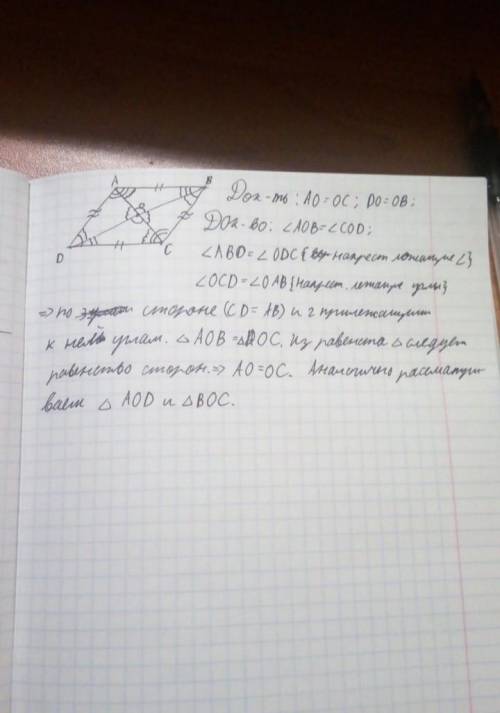 A B
Док-ть: AO=OC; DO=OB;
O
Док-во: ∠AOB=∠COD;
D C
∠ABD=∠ODC{накрест лежащие ∠}
∠OCD=∠OAB{накрест. лежащие углы}
⇒ по стороне (CD=AB) и 2 прилежащим
к ней углам. △AOB=△DOC. Из равенства △ следует
равенство сторон.⇒ AO=OC. Аналогично рассматри
ваем △ AOD и △BOC.